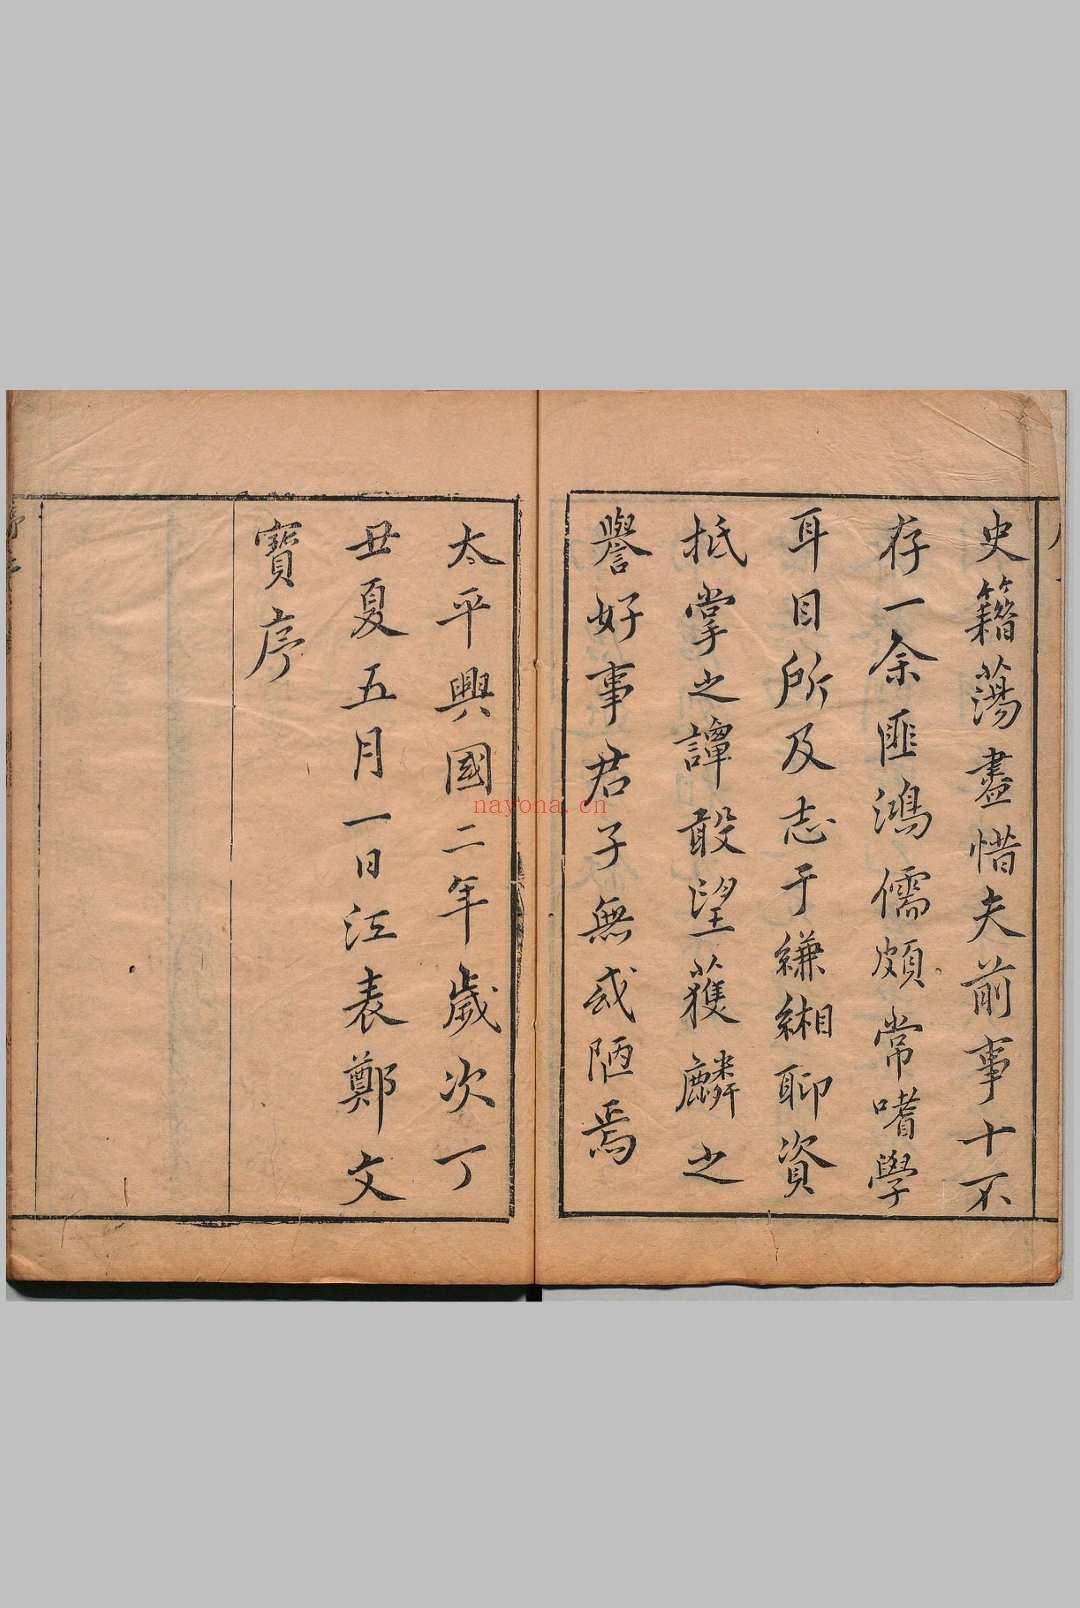 史籍蕩盡惜夫前事十不
存一余匪鴻儒頗常嗜學
耳目所及志于縑緗聊資
抵掌之譚敢望獲麟之
譽好事君子無或陋焉
太平興國二年歲次丁
丑夏五月一日江表鄭文
寶序
nayona.cn